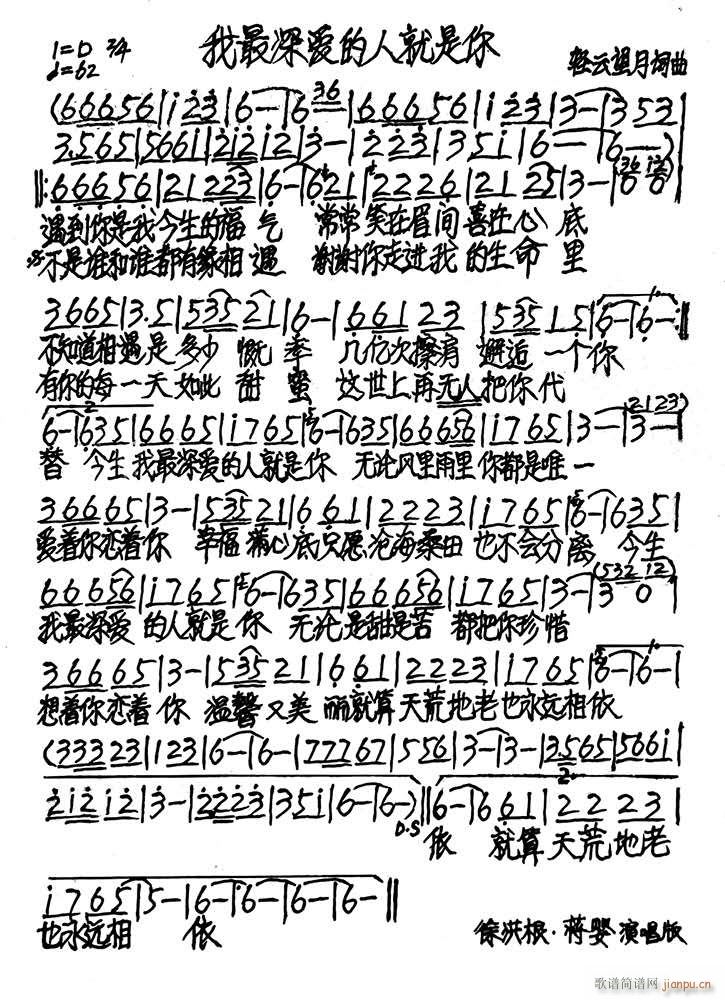 我最深爱的人就是你
1=D 2/4
♩=62
轻云望月词曲
(66656|i 23|6-|6 36|66656|i 23|3-|3 53|
3.565|5661|2i2i2|3-|2223|35i|6-|6-)|
‖:66656|21223|6-|621|22226|21 25|3-|(36 12)
遇到你是我今生的福气 常常笑在眉间喜在心底
不是谁和谁都有缘相遇 谢谢你走进我的生命里
3665|3.5|53521|6-|66123|53515|6-|6-:‖
不知道相遇是多少慨幸 几亿次擦肩邂逅一个你
有你的每一天如此甜蜜 这世上再无人把你代
6-|635|6665|i765|6-|635|66656|i765|3-|3-(2123)|
替 今生我最深爱的人就是你 无论风里雨里你都是唯一
36665|3-|53521|661|2223|i765|6-|635|
爱着你恋着你 幸福满心底只愿沧海桑田也不会分离 今生
66656|i765|6-|635|66656|i765|3-|30(53212)|
我最深爱的人就是你 无论是甜是苦都把你珍惜
36665|3-|53521|661|2223|i765|6-|6-|
想着你恋着你 温馨又美丽就算天荒地老也永远相依
(33323|123|6-|6-|77767|556|3-|3-|3.565|566i|
2i2i2|3-|2223|35i|6-|6-)‖6-|661|2223|
D.S
依 就算天荒地老
i765|5-|6-|6-|6-|6-‖
也永远相 依
徐洪根·蒋婴演唱版
歌谱简谱网
jianpu.cn